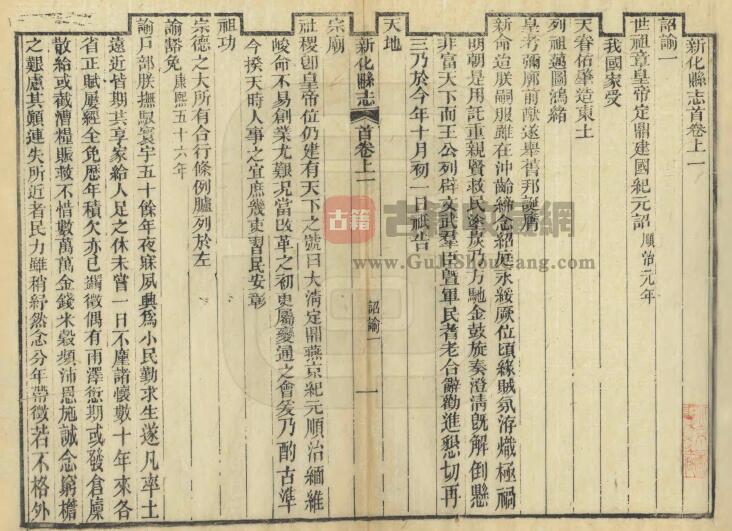 新化縣志首卷上一
詔諭一
世祖章皇帝定鼎建國紀元詔順治元年
我國家受
天眷佑肇造東土
列祖邁圖鴻緒
皇考彌廓前猷遂舉舊邦誕膺
新命迨朕嗣服雖在沖齡締念紹庭永綏厥位頃緣賊氛洊熾極禍
明朝是用託重親賢救民塗炭乃方馳金鼓旋奏澄清既解倒懸
非富天下而王公列辟文武羣臣暨軍民耆老合辭勸進懇切再
三乃於今年十月初一日祗告
天地
新化縣志
首卷上一
詔諭一
一
宗廟
社稷卽皇帝位仍建有天下之號曰大淸定鼎燕京紀元順治緬維
峻命不易創業尤艱况當改革之初更屬變通之會爰乃酌古準
今揆天時人事之宜庶幾吏習民安彰
祖功
宗德之大所有合行條例臚列於左
諭豁免康熙五十六年
諭戸部朕撫馭寰宇五十餘年夜寐夙興爲小民勤求生遂凡率土
遠近皆期共享家給人足之休未嘗一日不廑諸懷數十年來各
省正賦屢經全免歷年積欠亦已蠲徵偶有雨澤愆期或發倉廩
散給或截漕糧賑救不惜數萬萬金錢米穀頻沛恩施誠念窮檐
之艱慮其顛連失所近者民力雖稍紓然念分年帶徵若不格外
古籍
www.GuJiShouCang.com